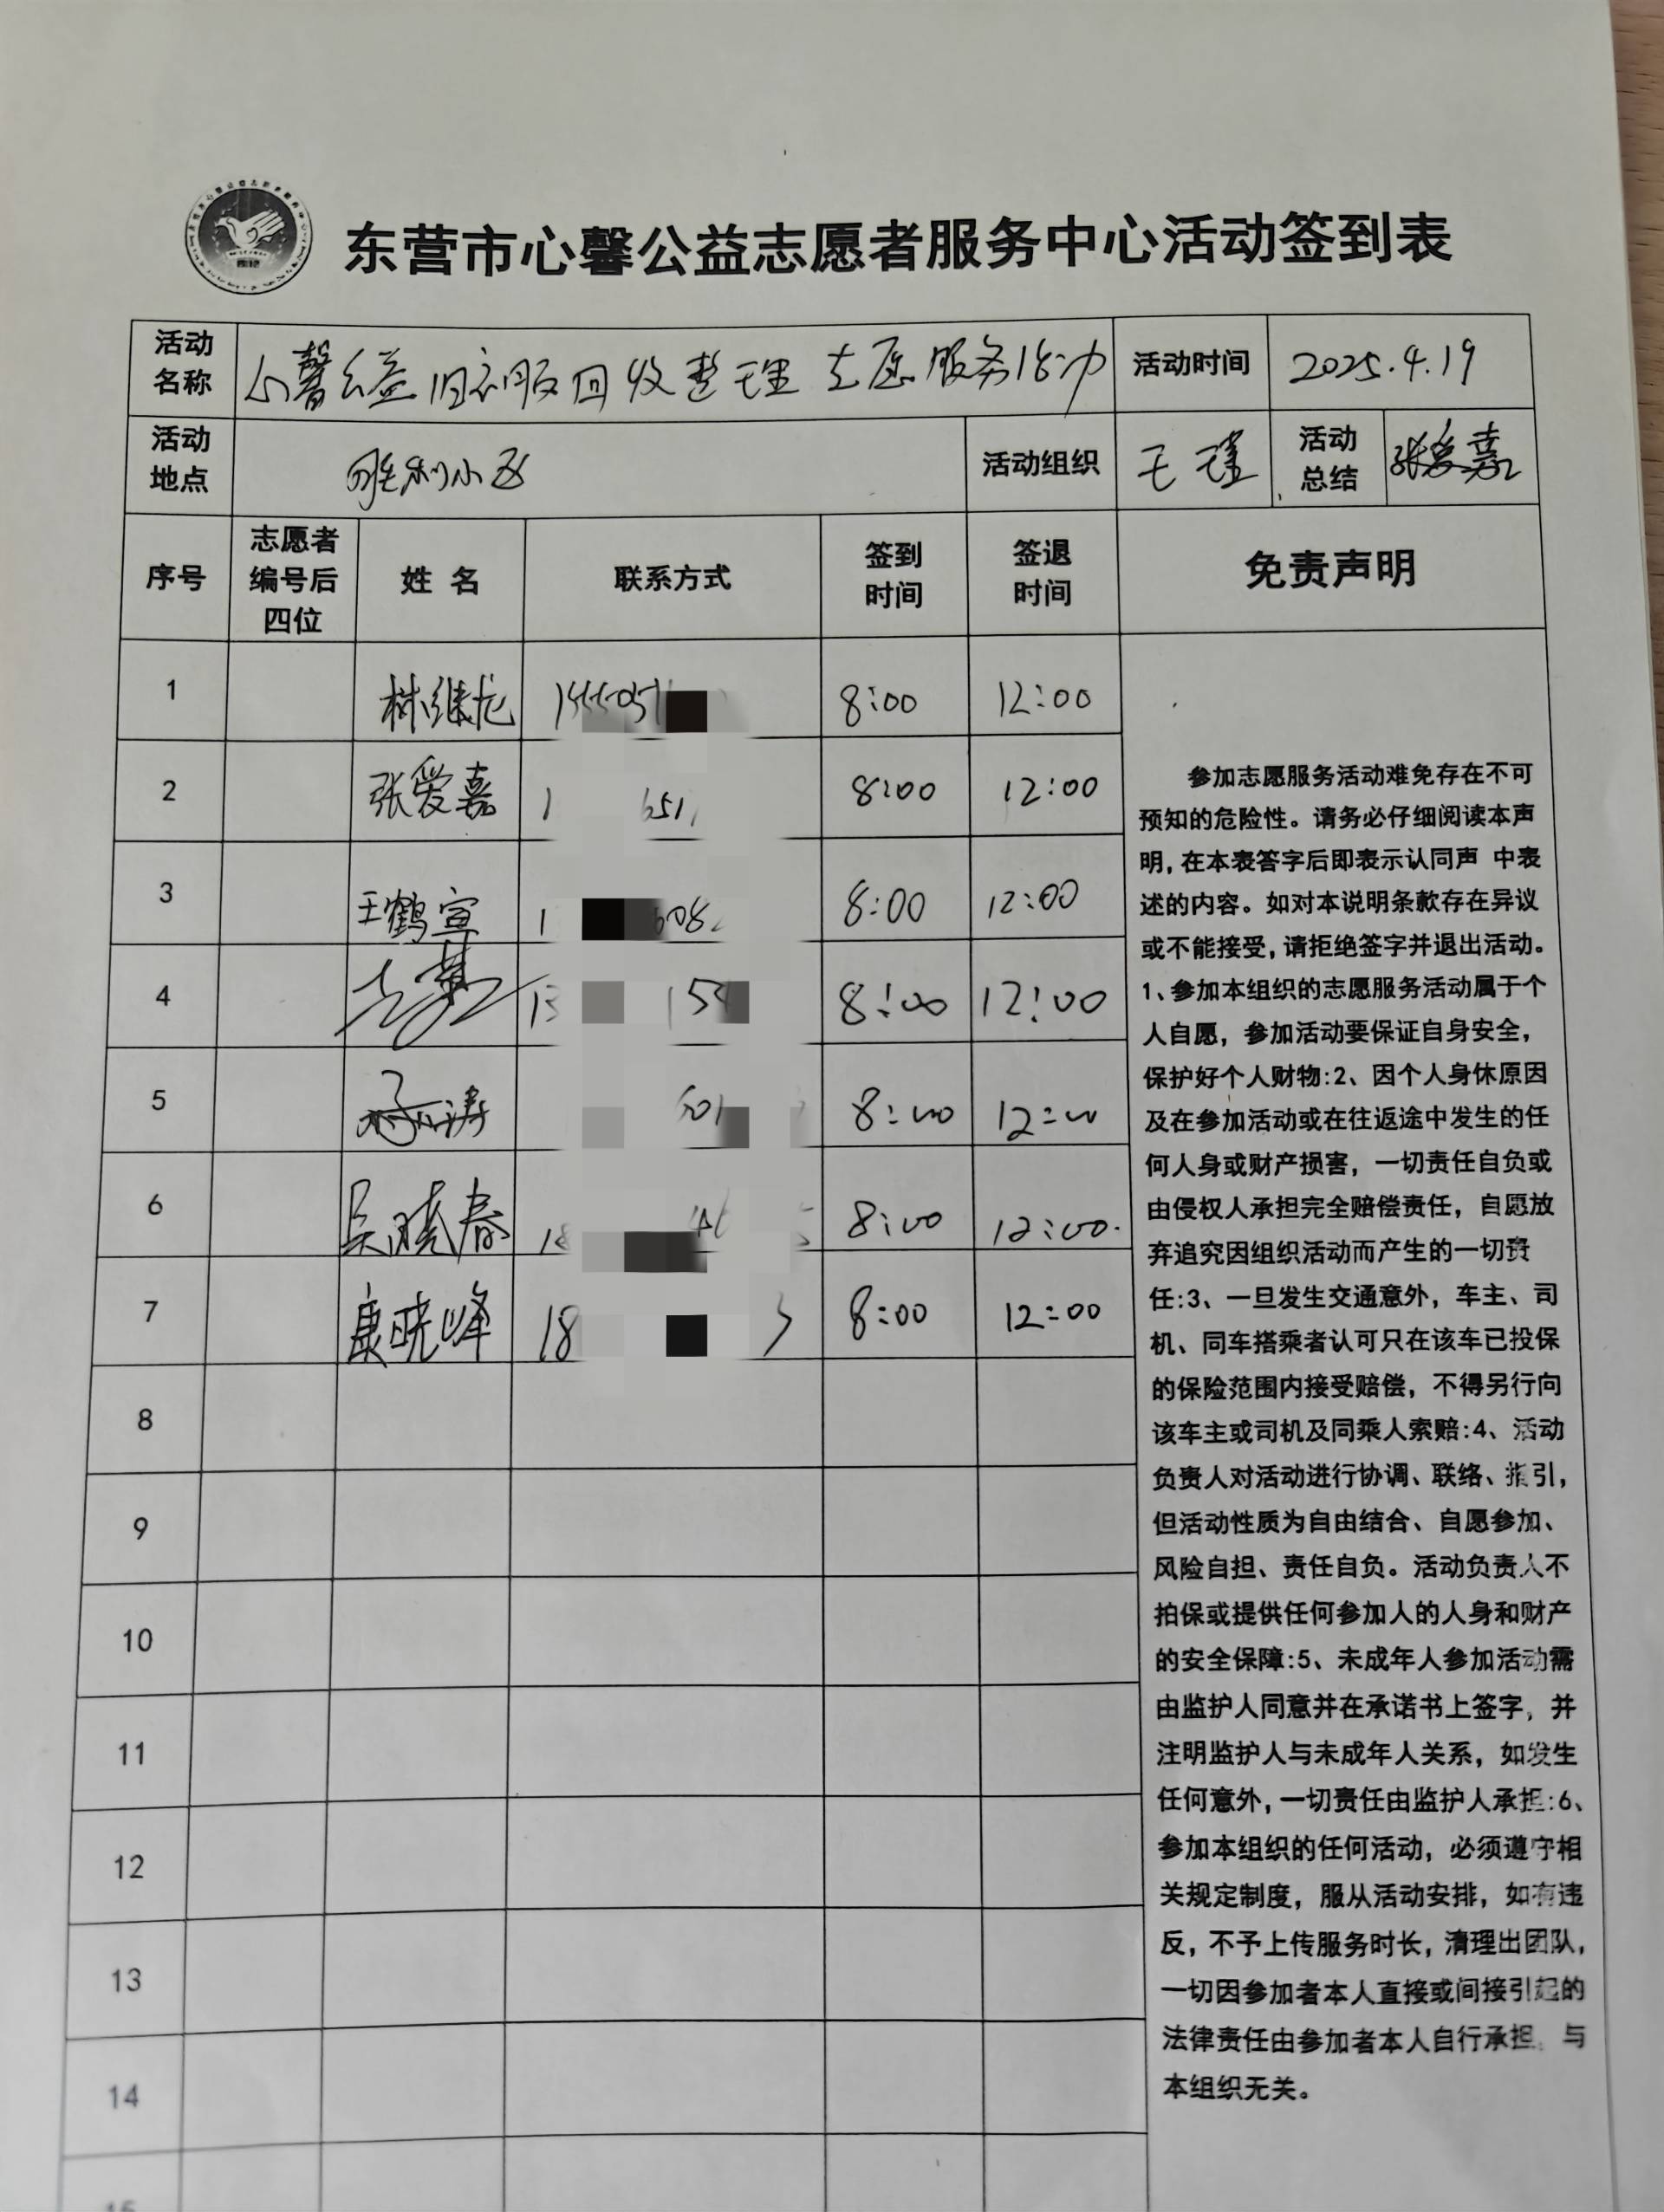 东营市心馨公益志愿者服务中心活动签到表
活动名称 心馨公益旧衣服回收整理志愿服务活动 活动时间 2025.4.19
活动地点 胜利小区 活动组织 王瑾 活动总结 张爱嘉
序号 志愿者编号后四位 姓 名 联系方式 签到时间 签退时间 免责声明
1 林继龙 8:00 12:00
2 张爱嘉 8:00 12:00
3 王鹤宣 8:00 12:00
4 8:00 12:00
5 8:00 12:00
6 吴晓春 8:00 12:00.
7 康晓峰 18 8:00 12:00
8
9
10
11
12
13
14
15
参加志愿服务活动难免存在不可
预知的危险性。请务必仔细阅读本声
明,在本表答字后即表示认同声 中表
述的内容。如对本说明条款存在异议
或不能接受,请拒绝签字并退出活动。
1、参加本组织的志愿服务活动属于个
人自愿，参加活动要保证自身安全，
保护好个人财物:2、因个人身休原因
及在参加活动或在往返途中发生的任
何人身或财产损害，一切责任自负或
由侵权人承担完全赔偿责任，自愿放
弃追究因组织活动而产生的一切责
任:3、一旦发生交通意外，车主、司
机、同车搭乘者认可只在该车已投保
的保险范围内接受赔偿，不得另行向
该车主或司机及同乘人索赔:4、活动
负责人对活动进行协调、联络、指引，
但活动性质为自由结合、自愿参加、
风险自担、责任自负。活动负责人不
拍保或提供任何参加人的人身和财产
的安全保障:5、未成年人参加活动需
由监护人同意并在承诺书上签字，并
注明监护人与未成年人关系，如发生
任何意外,一切责任由监护人承担:6、
参加本组织的任何活动，必须遵守相
关规定制度，服从活动安排，如有违
反，不予上传服务时长，清理出团队，
一切因参加者本人直接或间接引起的
法律责任由参加者本人自行承担，与
本组织无关。